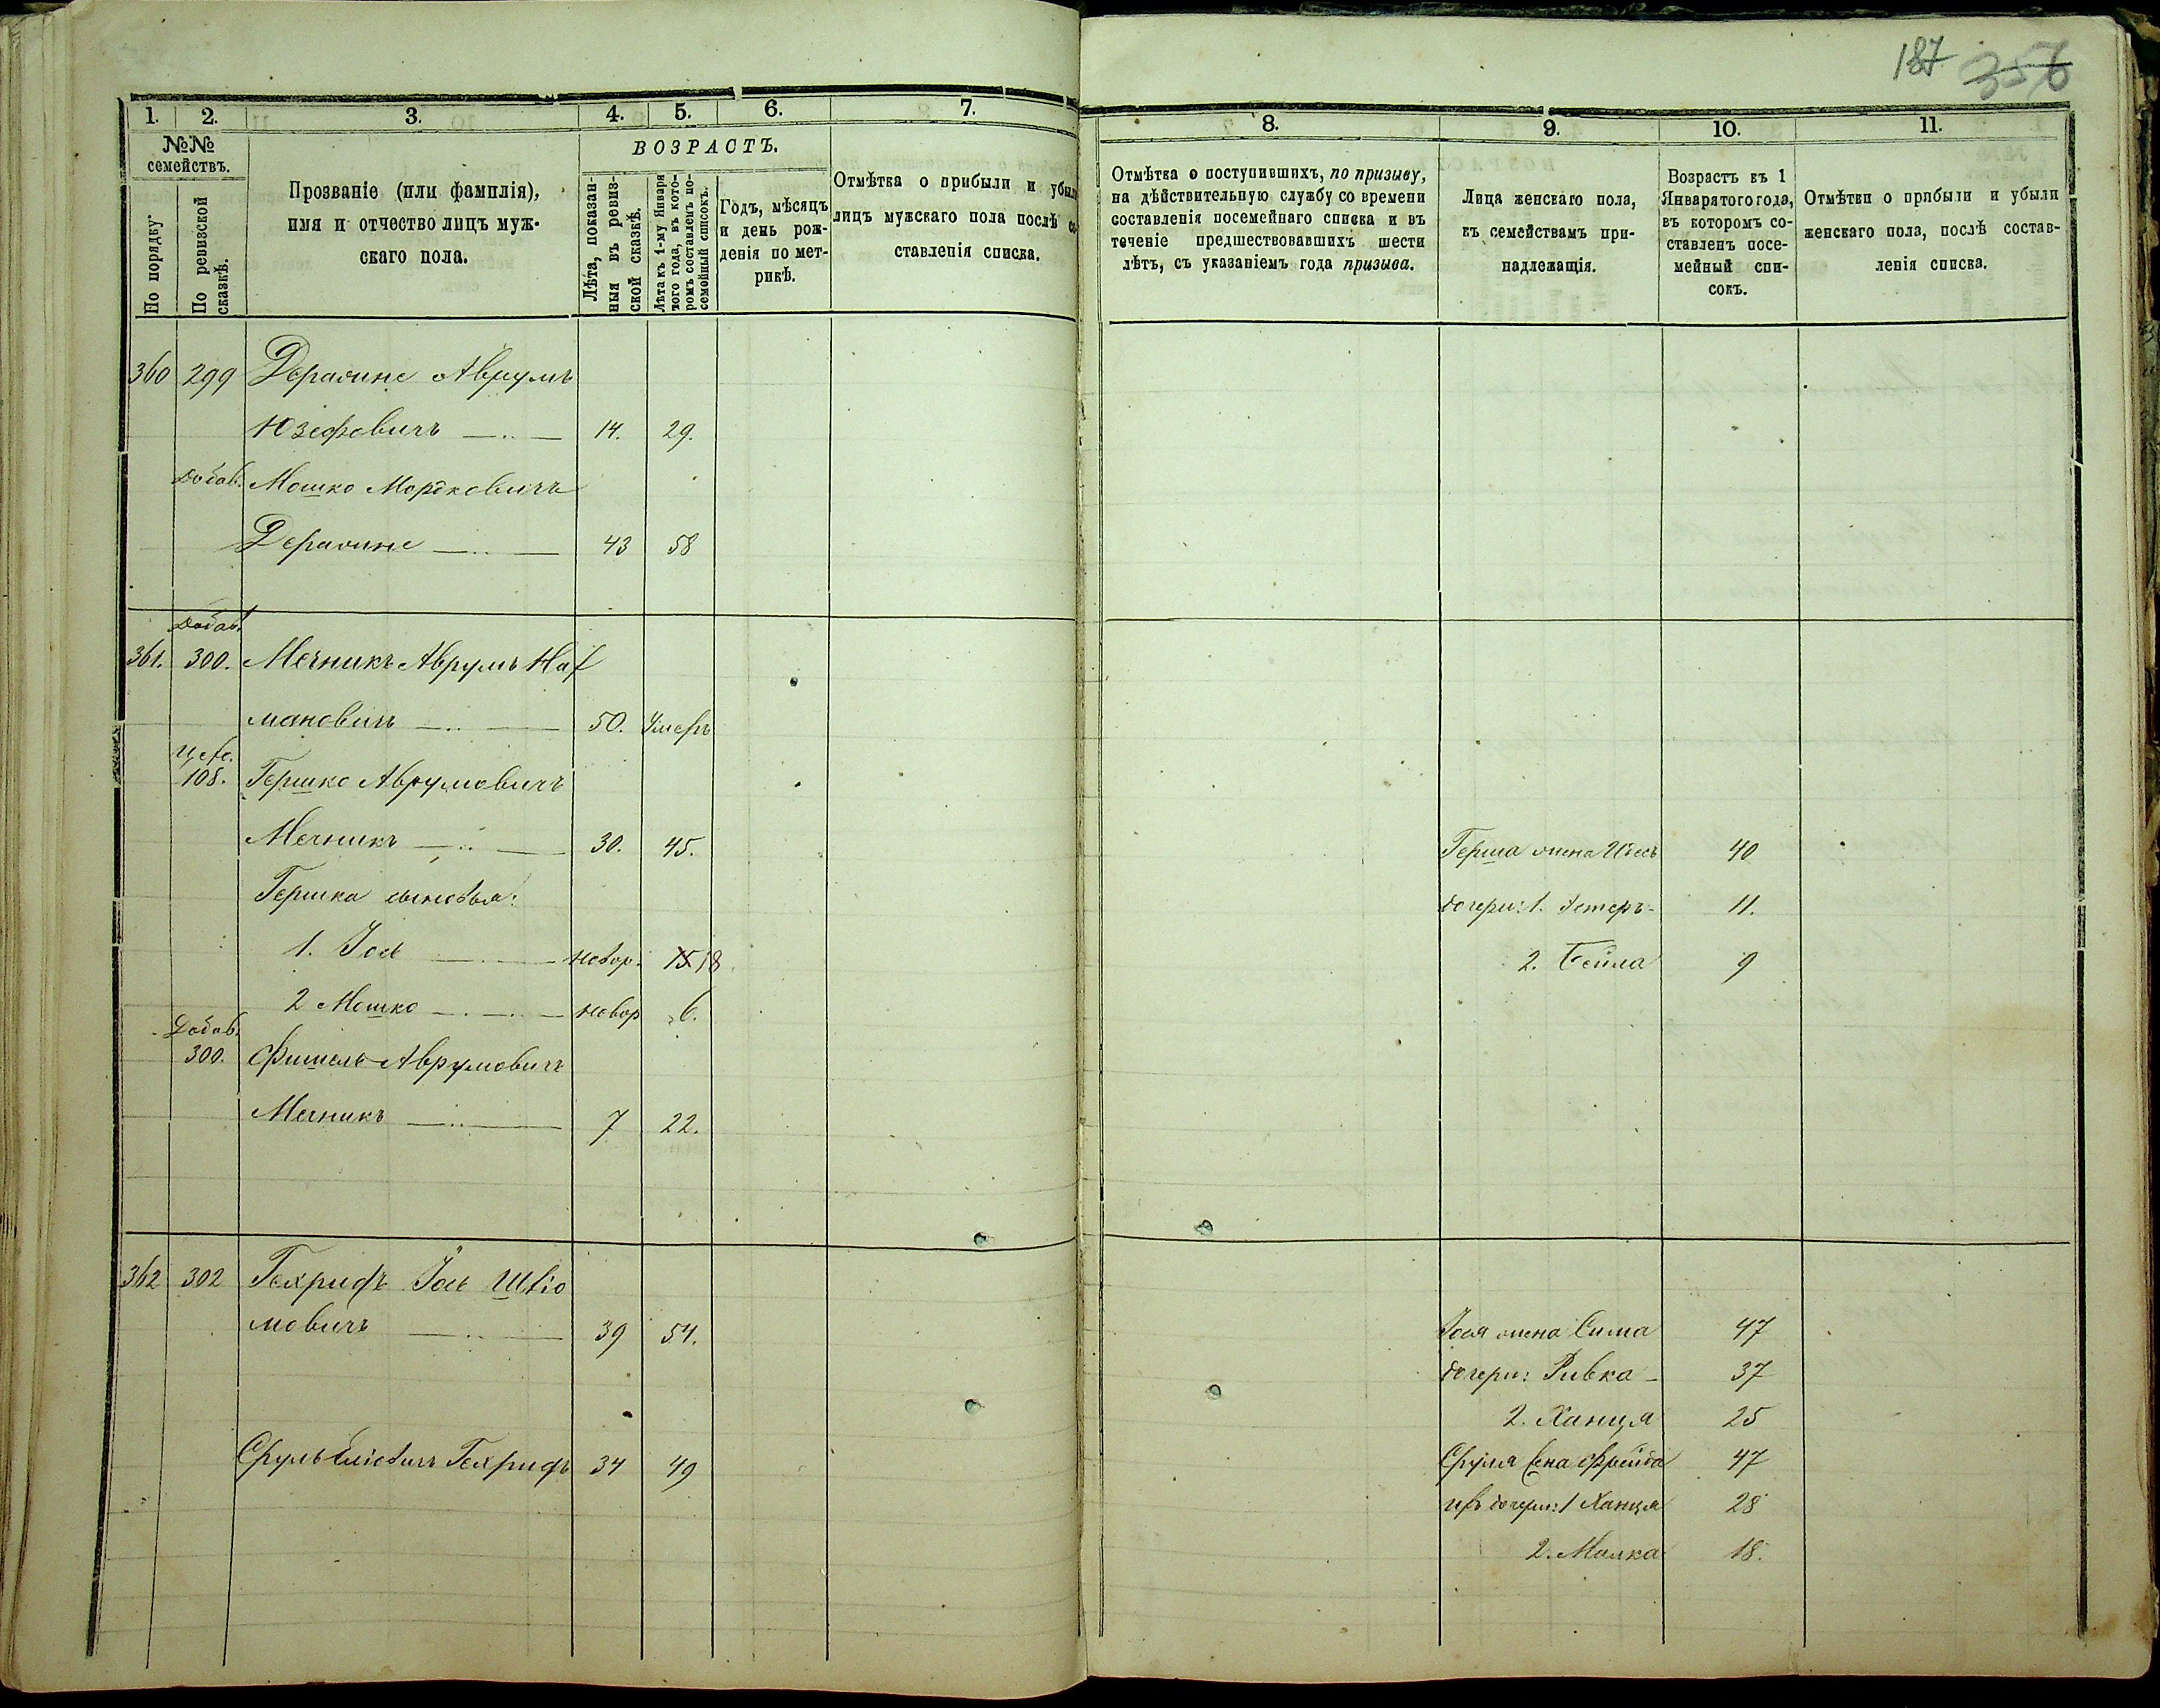 187 356
1. 2. 3. 4. 5. 6. 7.
№№ семействъ.
По порядку.
По ревизской сказкѣ.
Прозваніе (или фамилія),
имя и отчество лицъ муж-
скаго пола.
ВОЗРАСТЪ.
Лѣта, показан-
ныя въ ревиз-
ской сказкѣ.
Лѣта къ 1-му Января
того года, въ кото-
ромъ составленъ по-
семейный списокъ.
Годъ, мѣсяцъ
и день рож-
денія по мет-
рикѣ.
Отмѣтка о прибыли и убыли
лицъ мужскаго пола послѣ со
ставленія списка.
8. 9. 10. 11.
Отмѣтка о поступившихъ, по призыву,
на дѣйствительную службу со времени
составленія посемейнаго списка и въ
теченіе предшествовавшихъ шести
лѣтъ, съ указаніемъ года призыва.
Лица женскаго пола,
къ семействамъ при-
надлежащія.
Возрастъ къ 1
Января того года,
въ которомъ со-
ставленъ посе-
мейный спи-
сокъ.
Отмѣтки о прибыли и убыли
женскаго пола, послѣ состав-
ленія списка.
360 299 Аврумъ
Юзефовичъ 14. 29.
Добав. Мошко Мордковичъ
43 58
Добав.
361. 300. Мечникъ Аврумъ Наf
мановичъ 50. Умеръ
108. Гершко Аврумовичъ
Мечникъ 30. 45. Герша жена 40
Гершка сыновья: дочери: 1. Эстеръ 11.
1. Іось новор. 15 18 2. Бейла 9
2 Мошко новор 6.
Добав.
300. Фишель Аврумовичъ
Мечникъ 7 22.
362 302 Гехрифъ Іось Шліо
мовичъ 39 54. Іося жена Сима 47
дочери: Ривка 37
2. Ханця 25
Срулъ Гехрифъ 34 49 Сруля жена Фрейда 47
ихъ дочери: 1 Ханця 28
2. Малка 18.